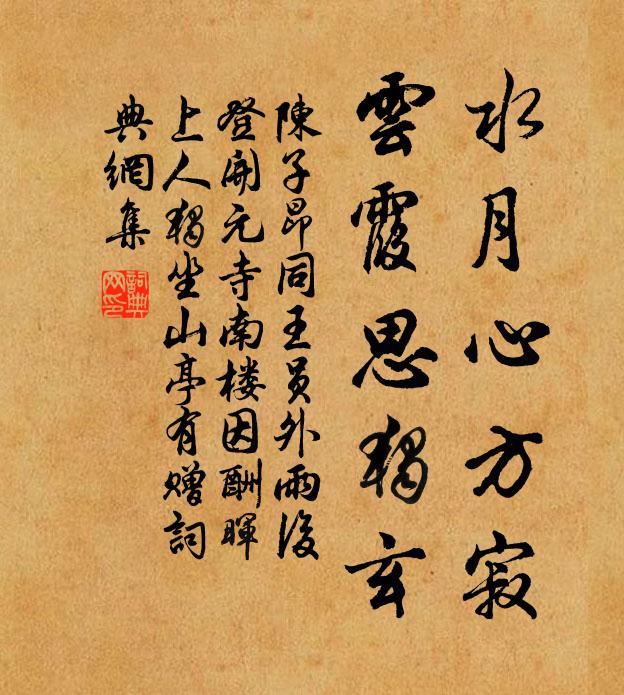 水月心方寂
雲霞思獨玄
陳子昂同王员外雨後
登開元寺南楼因酬暉
上人獨坐山亭有赠詞
典網集
詞典
网印